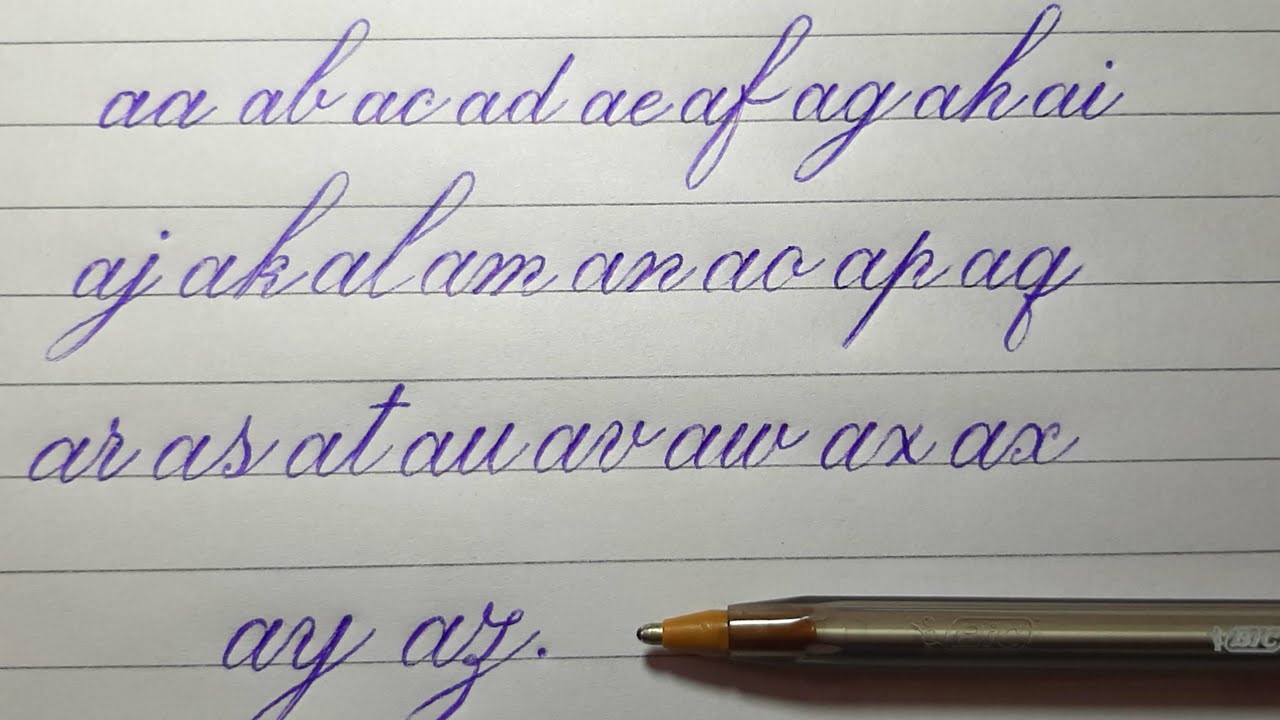 aa ab ac ad ae af ag ah ai
aj ak al am an ao ap aq
ar as at au av aw ax ax
ay az.
BIC
BIC